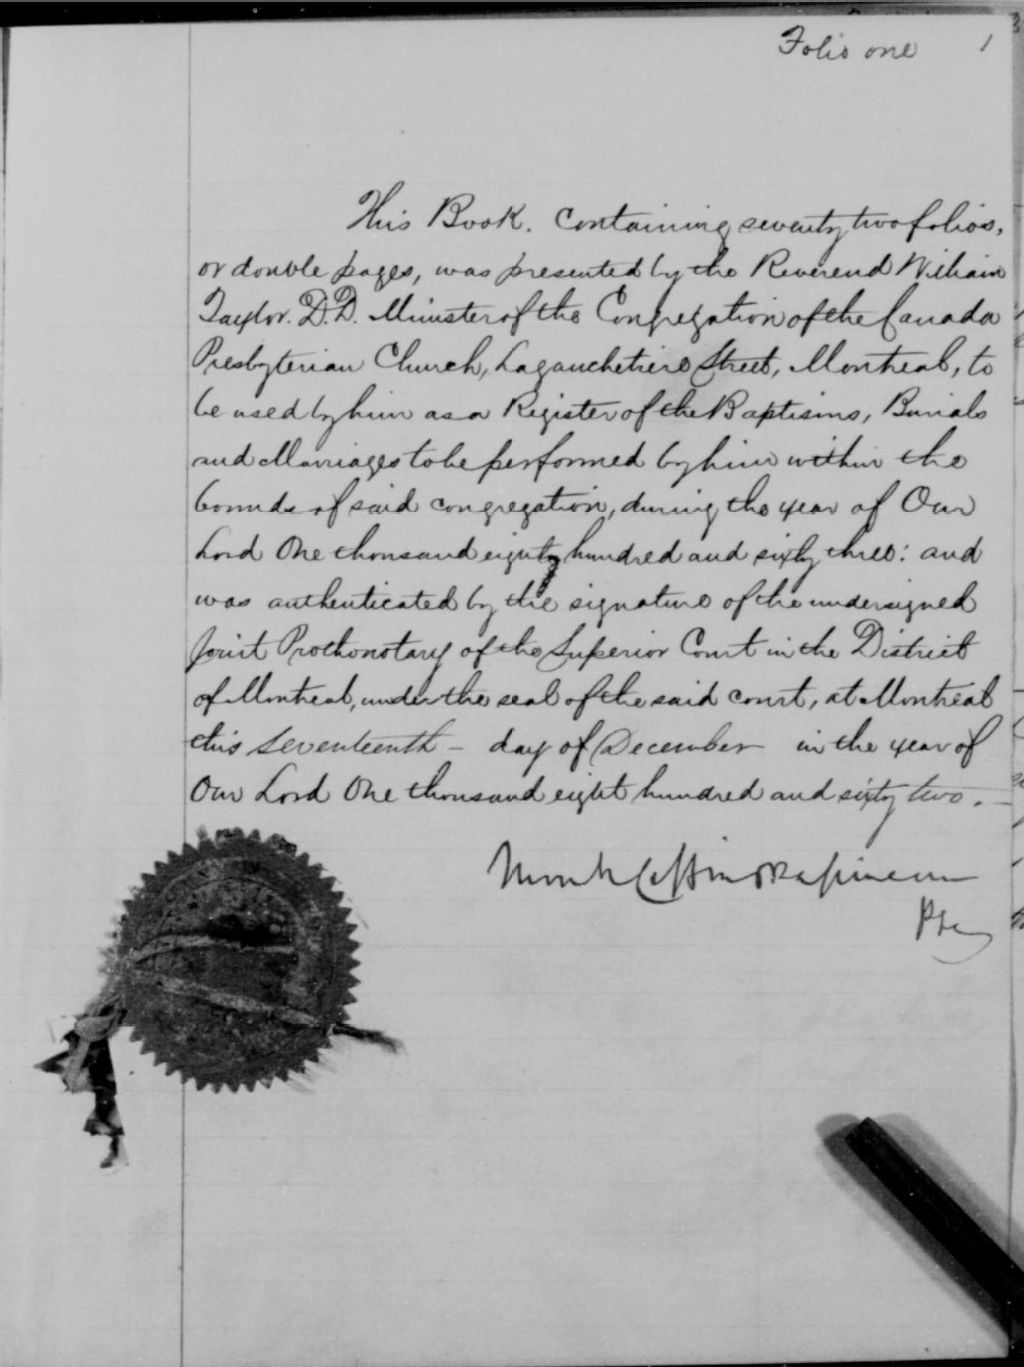 Folio one 1
This Book. Containing seventy two folios,
or double pages, was presented by the Reverend William
Taylor. D.D. Minister of the Congregation of the Canada
Presbyterian Church, Lagauchetiere Street, Montreal, to
be used by him as a Register of the Baptisms, Burials
and Marriages to be performed by him within the
bounds of said congregation, during the year of Our
Lord One thousand eighty hundred and sixty three: and
was authenticated by the signature of the undersigned
Joint Prothonotary of the Superior Court in the District
of Montreal, under the seal of the said court, at Montreal
this Seventeenth – day of December in the year of
Our Lord One thousand eight hundred and sixty two. –
Monk Coffin & Papineau